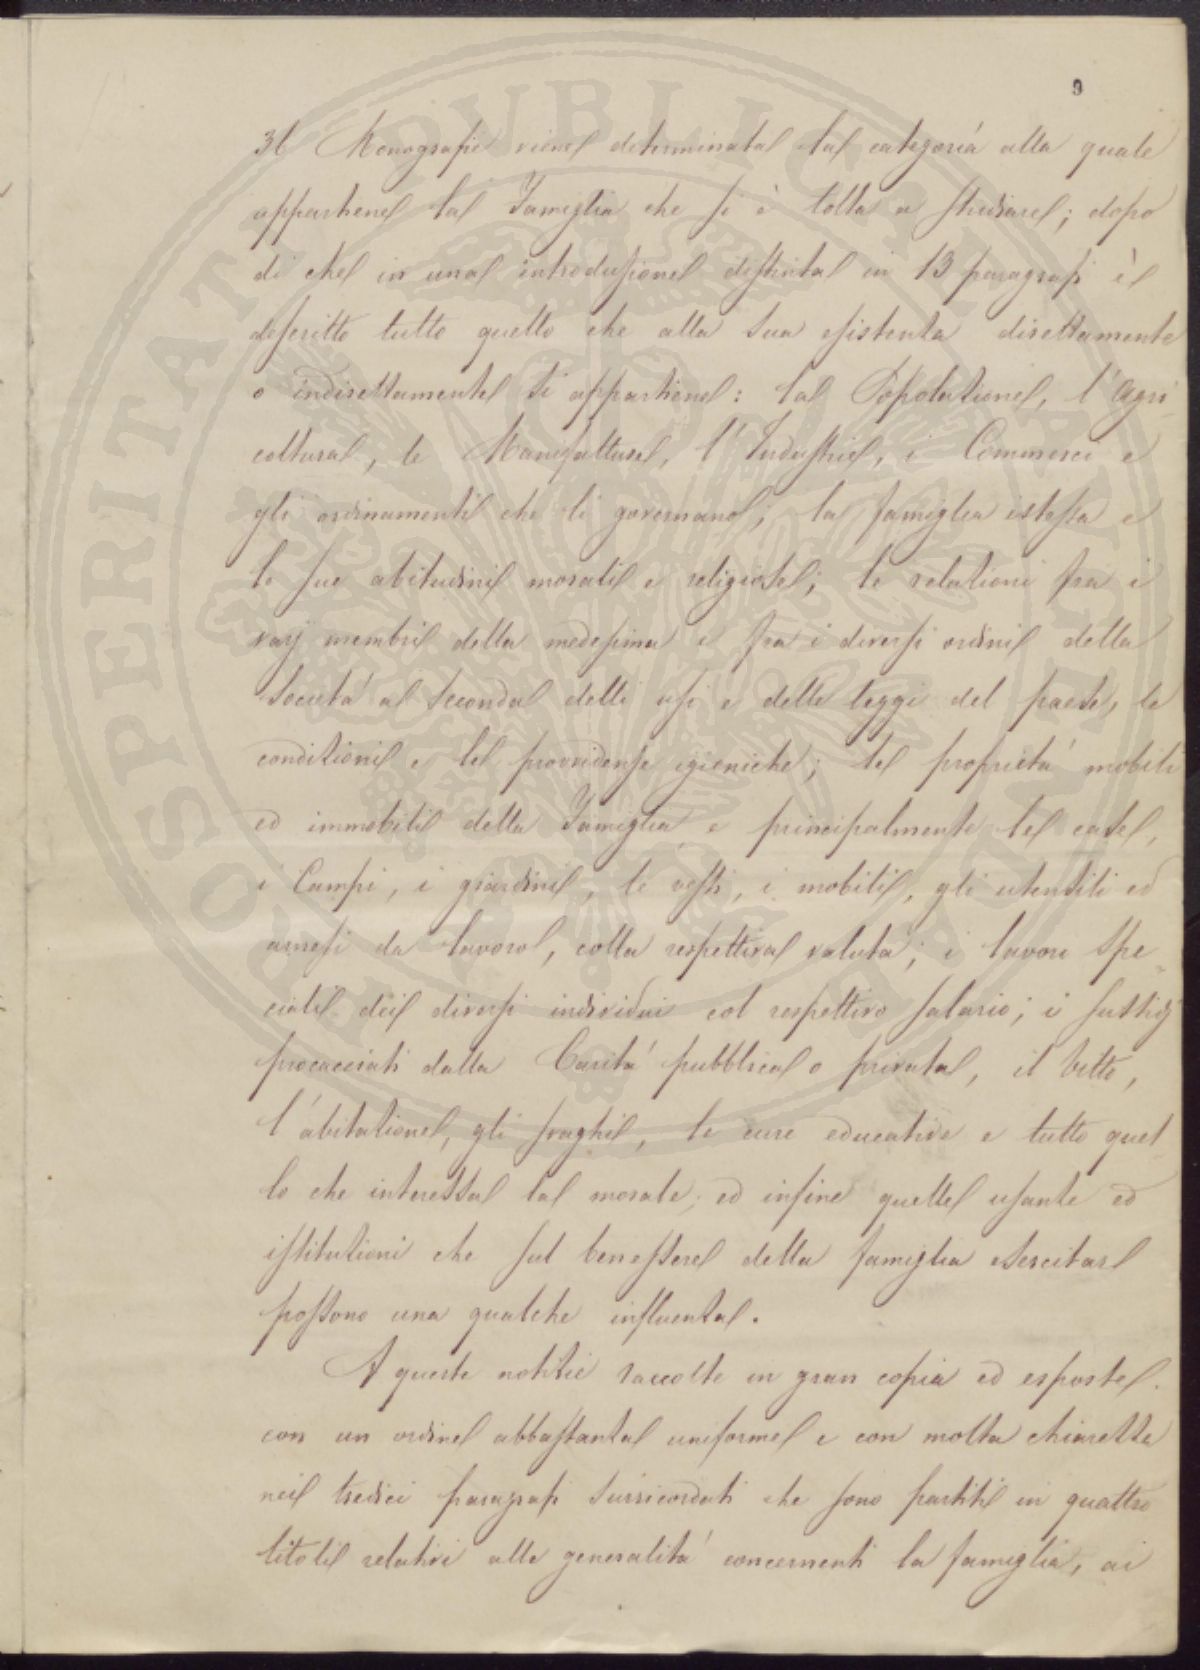 9
36 Monografie viene determinata la categoria alla quale
appartiene la Famiglia che si è tolta a studiare; dopo
di che in una introdusione distinta in 13 paragrafi è
descritto tutto quello che alla sua esistenza direttamente
o indirettamente si appartiene: la Popolazione, l'Agri-
coltura, le Manifatture, l'Industrie, i Commerci e
gli ordinamenti che li governano; la famiglia istessa e
le sue abitudini morali e religiose; le relazioni fra i
varj membri della medesima e fra i diversi ordini della
Società a seconda delli usi e delle leggi del paese, le
condizioni e le providense igieniche; le proprietà mobili
ed immobili della Famiglia e principalmente le case,
i Campi, i giardini, le vesti, i mobili, gli utensili ed
arnesi da lavoro, colla respettiva valuta; i lavori spe-
ciali dei diversi individui col respettivo salario; i sussidj
procacciati dalla Carità pubblica o privata, il vitto,
l'abitazione, gli svaghi, le cure educative e tutto quel-
lo che interessa la morale; ed infine quelle usanze ed
istituzioni che sul benessere della famiglia esercitare
possono una qualche influenza.
A queste notizie raccolte in gran copia ed esposte
con un ordine abbastanza uniforme e con molta chiarezza
nei tredici paragrafi surricordati che sono partiti in quattro
titoli relativi alle generalità concernenti la famiglia, ai